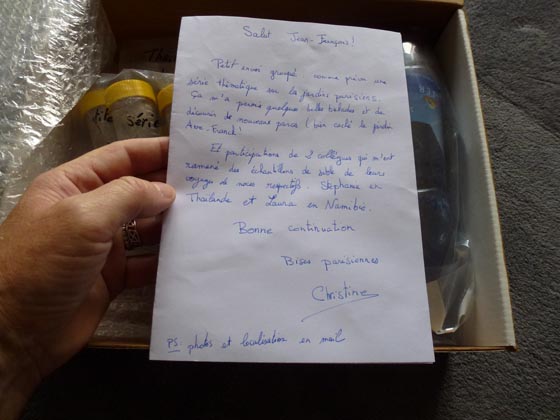 Salut Jean-François!
Petit envoi groupé comme prévu une
série thématique sur les jardins parisiens.
Ça m'a permis quelques belles balades et de
découvrir de nouveaux parcs (bien caché le jardin
Anne-Franck!
Et participations de 2 collègues qui m'ont
ramené des échantillons de sable de leurs
voyages de noces respectifs. Stéphanie en
Thaïlande et Laura en Namibie.
Bonne continuation
Bises parisiennes
Christine
PS photos et localisation en mail
série